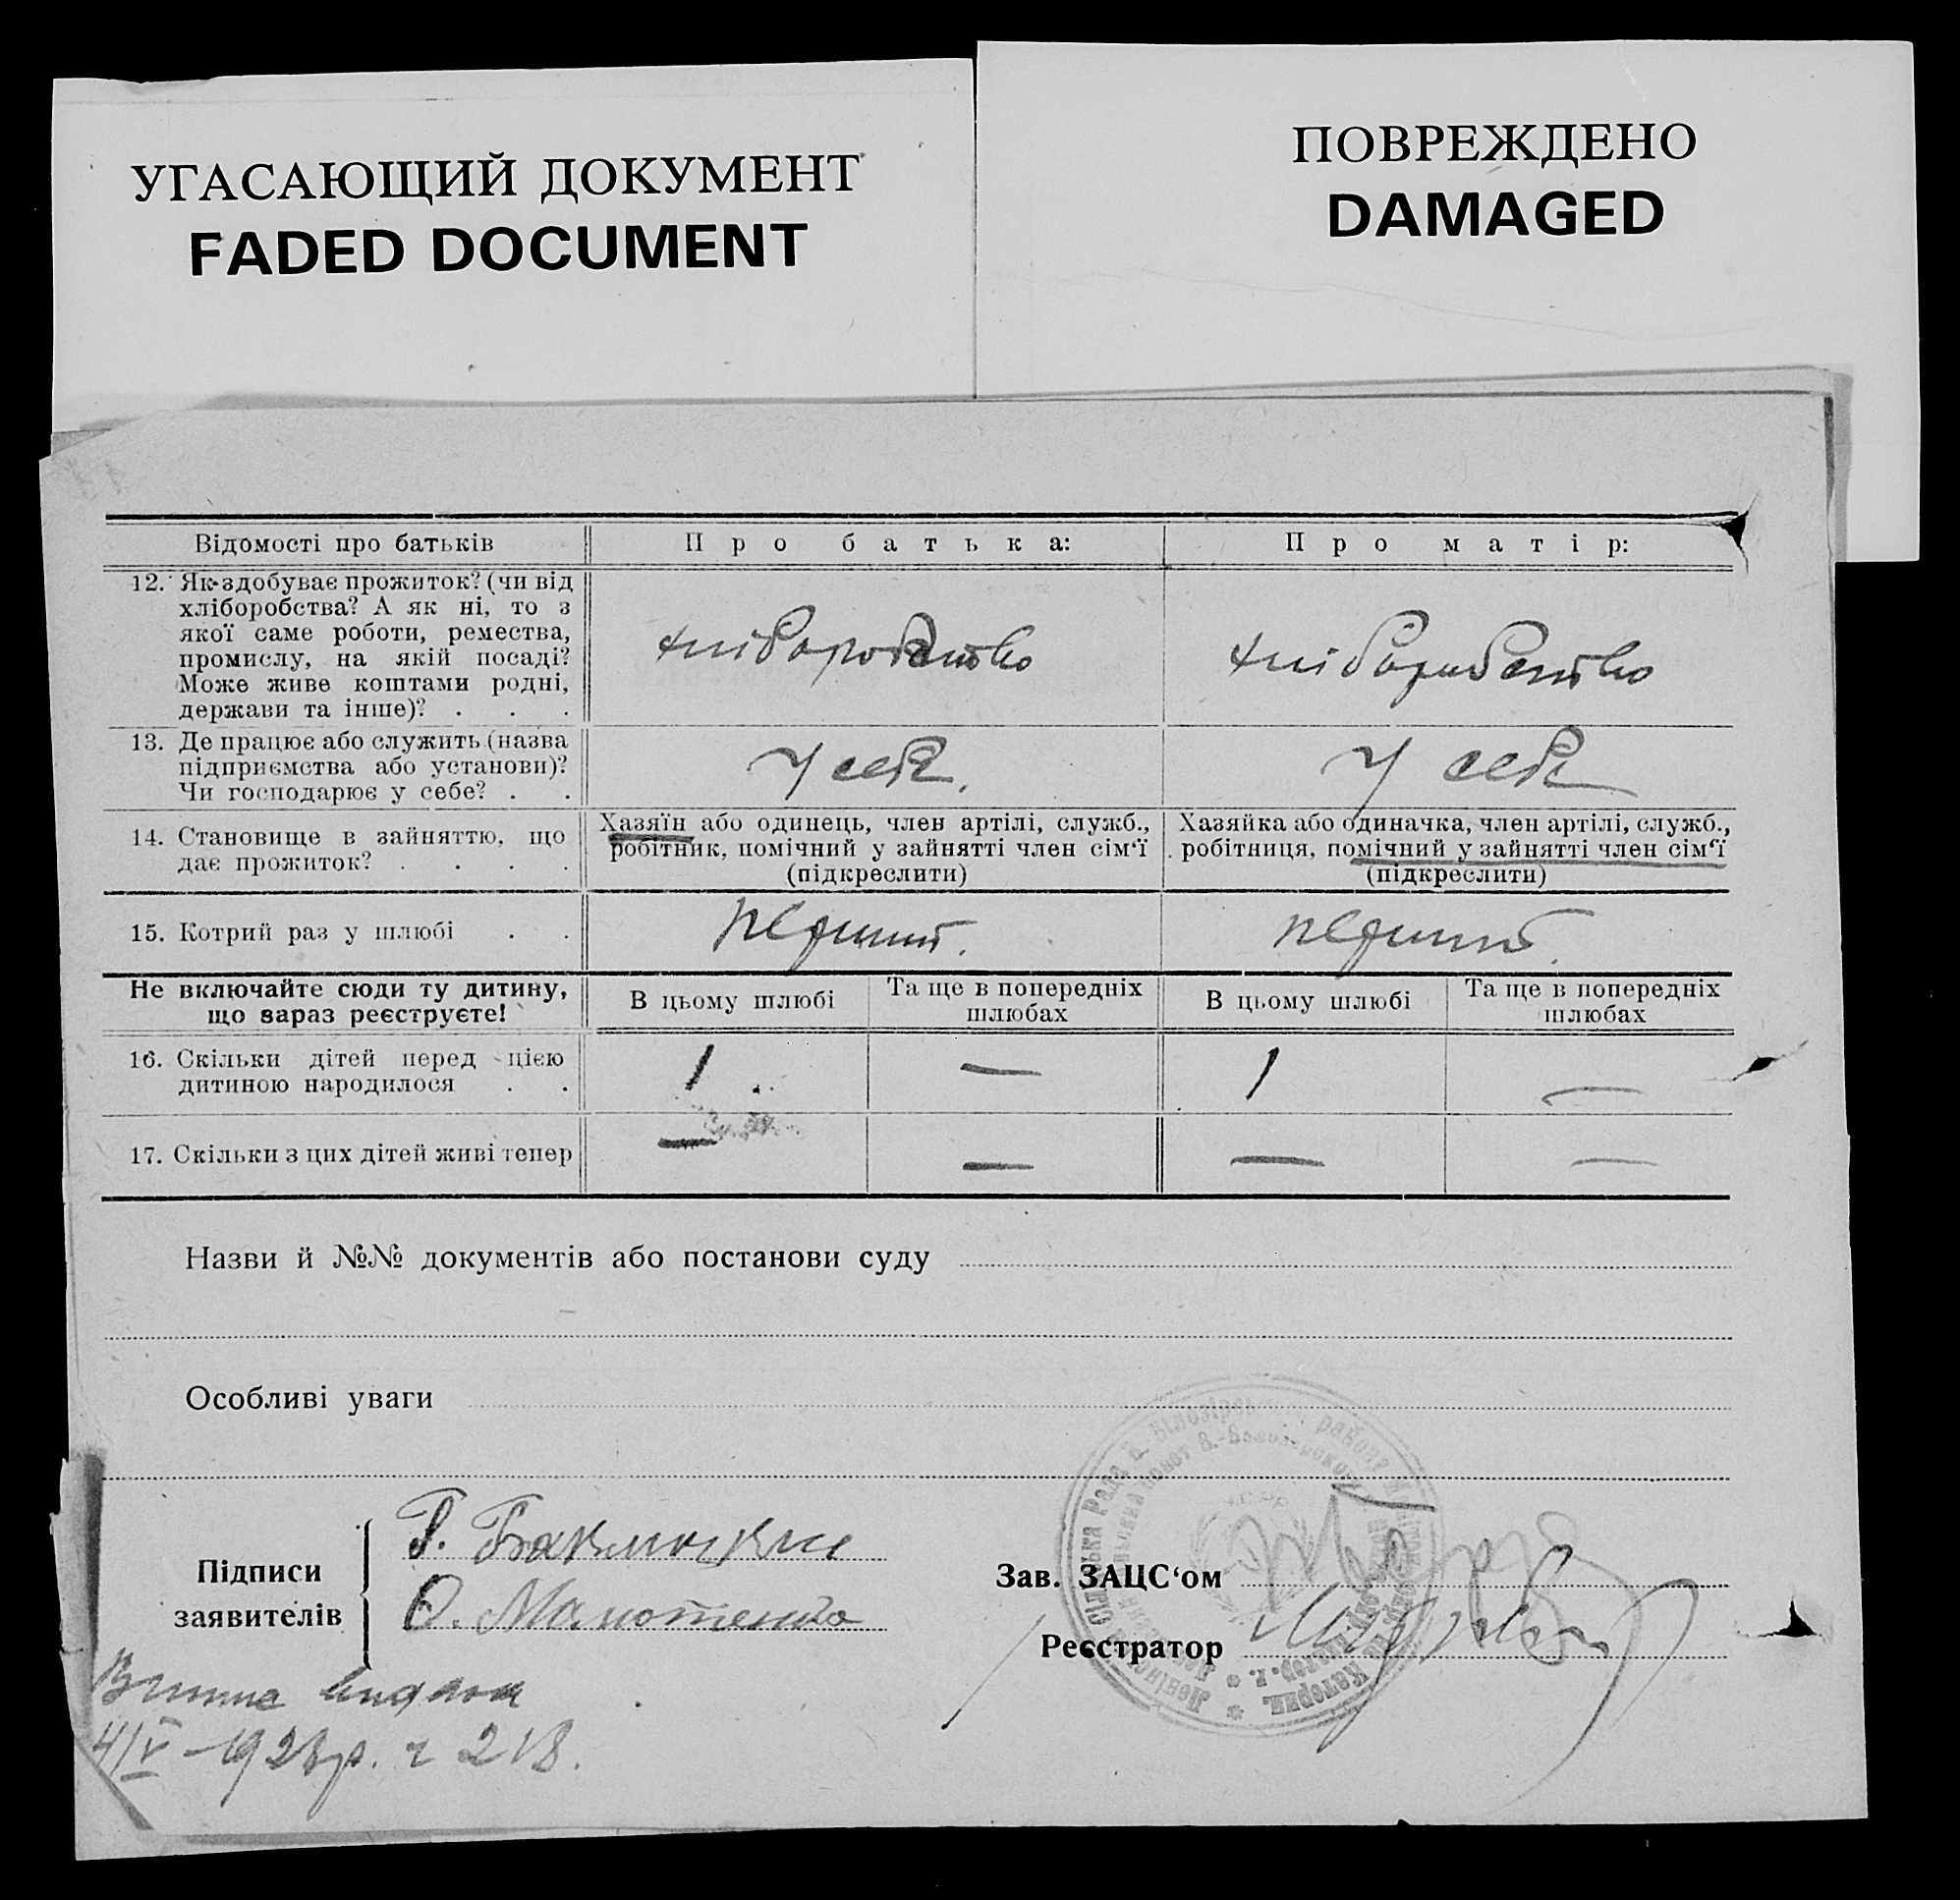 УГАСАЮЩИЙ ДОКУМЕНТ
FADED DOCUMENT
ПОВРЕЖДЕНО
DAMAGED
Відомості про батьків
Про батька:
Про матір:
12. Як здобуває прожиток? (чи від
хліборобства? А як ні, то з
якої саме роботи, ремества,
промислу, на якій посаді?
Може живе коштами родні,
держави та інше)? . . .
хліборобство
хліборобство
13. Де працює або служить (назва
підприємства або установи)?
Чи господарює у себе? . .
у себе.
у себе
14. Становище в зайняттю, що
дає прожиток? . . . .
Хазяїн або одинець, член артілі, служб.,
робітник, помічний у зайнятті член сім'ї
(підкреслити)
Хазяйка або одиначка, член артілі, служб.,
робітниця, помічний у зайнятті член сім'ї
(підкреслити)
15. Котрий раз у шлюбі . .
перший.
перший.
Не включайте сюди ту дитину,
що зараз реєструєте!
В цьому шлюбі
Та ще в попередніх
шлюбах
В цьому шлюбі
Та ще в попередніх
шлюбах
16. Скільки дітей перед цією
дитиною народилося . .
1
—
1
—
17. Скільки з цих дітей живі тепер
—
—
—
—
Назви й №№ документів або постанови суду
Особливі уваги
Підписи
заявителів
Зав. ЗАЦС'ом
Реєстратор
Сільська Рада
району
видана
4/V – 1928 р. ч 218.